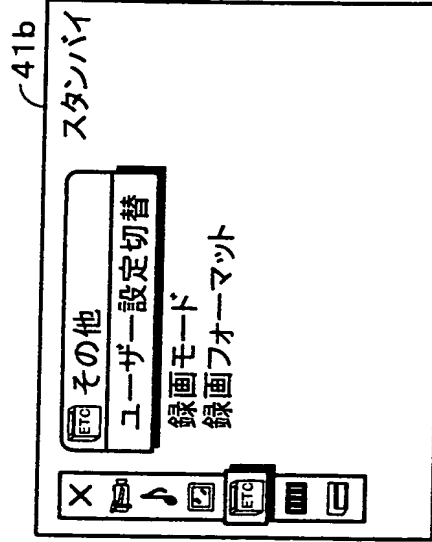 41b
スタンバイ
ETC その他
ユーザー設定切替
録画モード
録画フォーマット
×
ETC